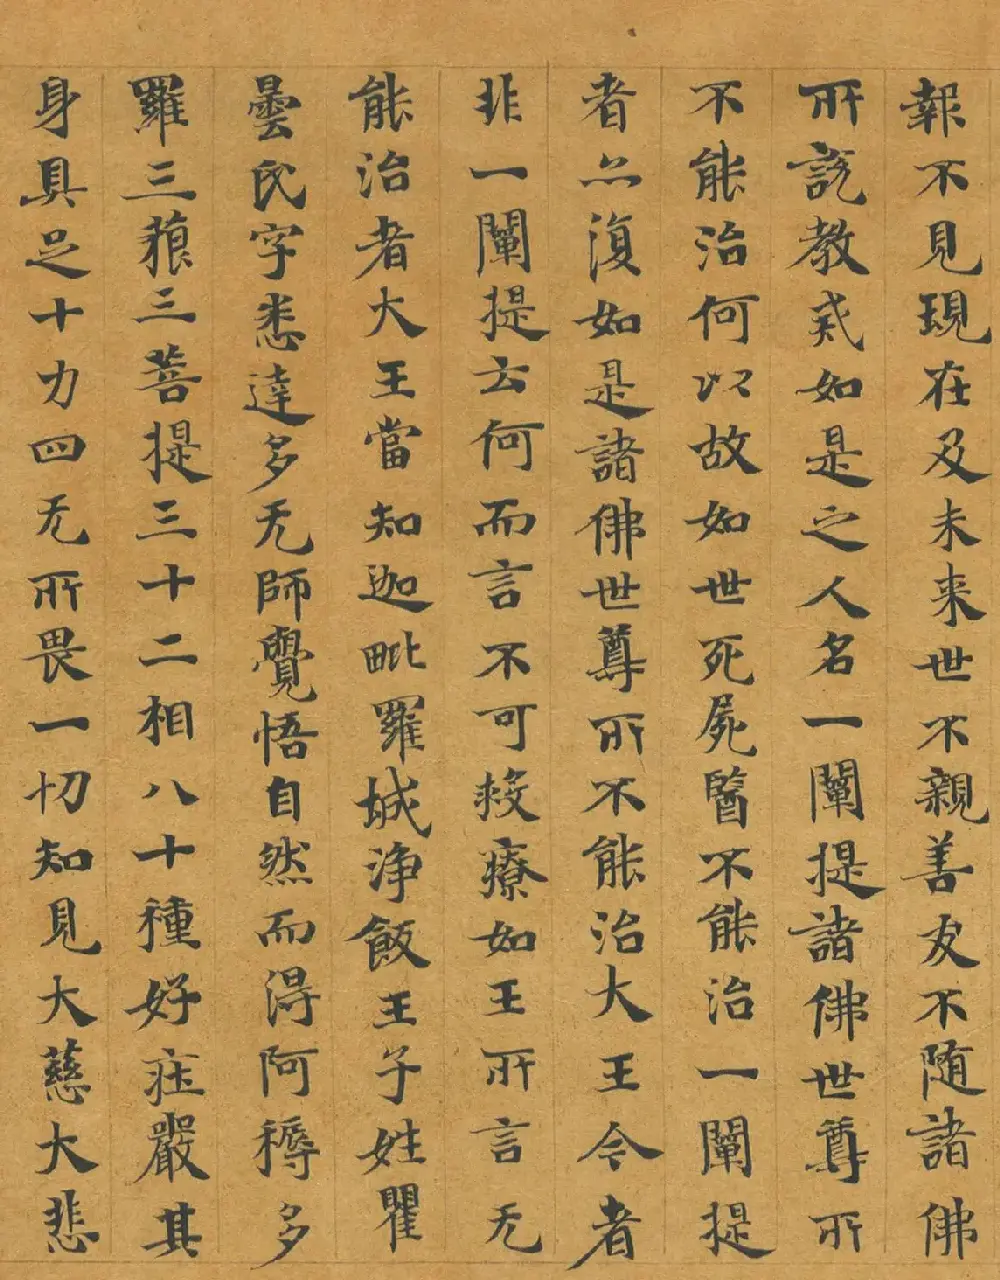 報不見現在及未来世不親善友不随諸佛
所說教戒如是之人名一闡提諸佛世尊所
不能治何以故如世死屍醫不能治一闡提
者亦復如是諸佛世尊所不能治大王今者
非一闡提云何而言不可救療如王所言无
能治者大王當知迦毗羅城浄飯王子姓瞿
曇氏字悉達多无師覺悟自然而淂阿耨多
羅三藐三菩提三十二相八十種好莊嚴其
身具足十力四无所畏一切知見大慈大悲